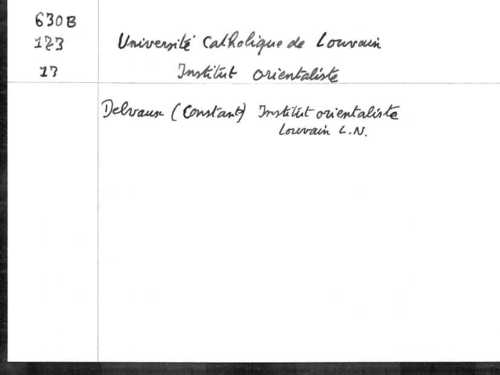 630B
173 Université Catholique de Louvain
17 Institut orientaliste
Delvaux (Constant) Institut orientaliste
Louvain L.N.